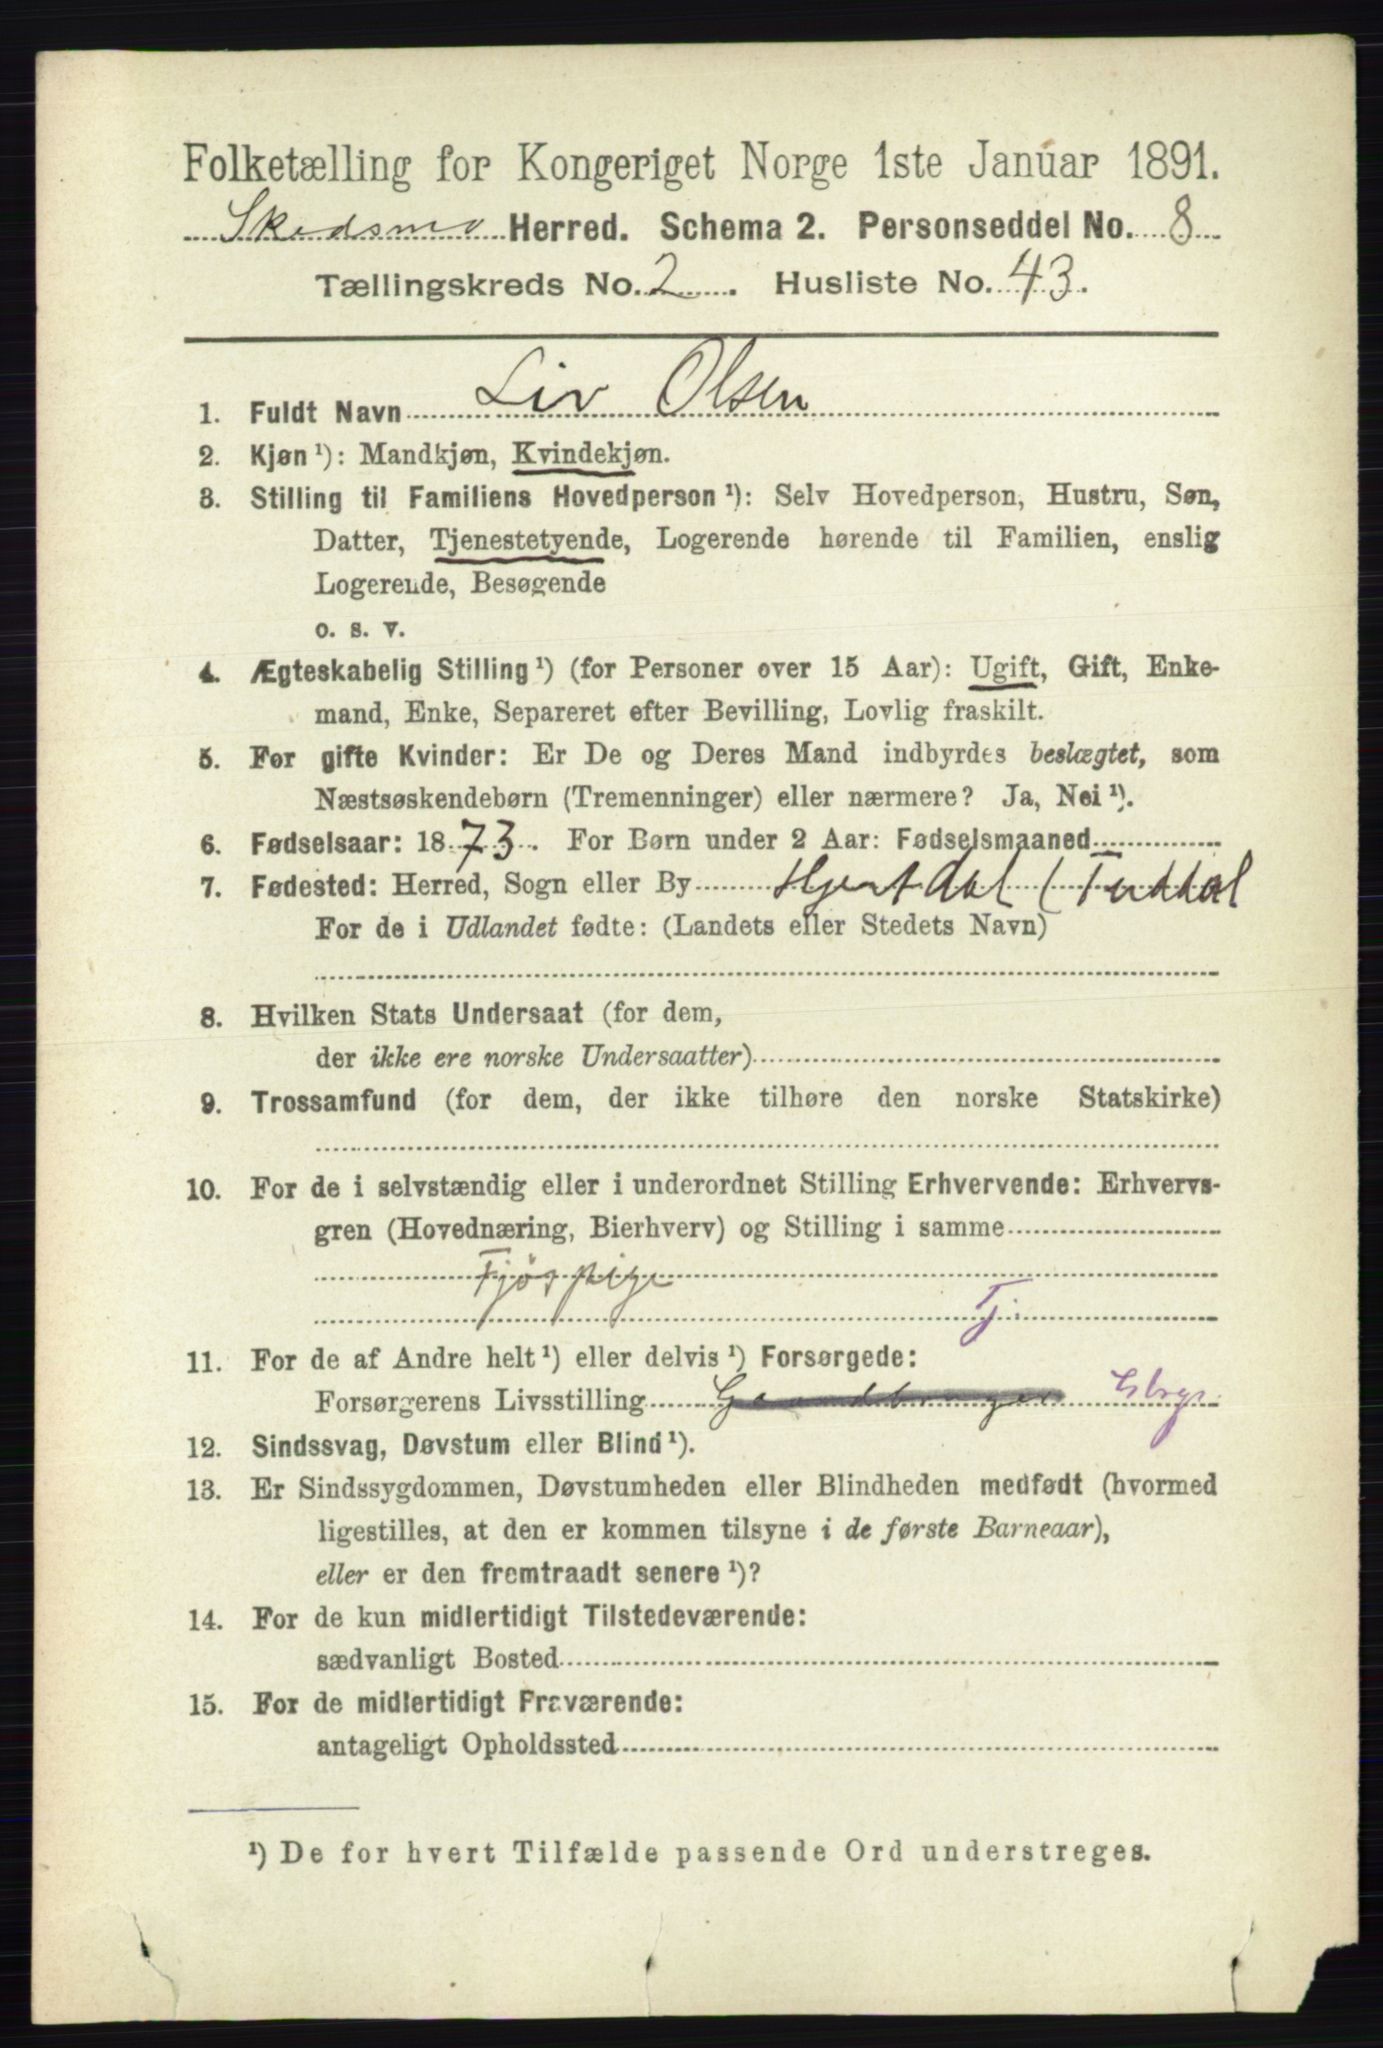 Folketælling for Kongeriget Norge 1ste Januar 1891.
Skedsmo Herred. Schema 2. Personseddel No. 8
Tællingskreds No. 2. Husliste No. 43.
1. Fuldt Navn Liv Olsen
2. Kjøn ¹): Mandkjøn, Kvindekjøn.
3. Stilling til Familiens Hovedperson ¹): Selv Hovedperson, Hustru, Søn,
Datter, Tjenestetyende, Logerende hørende til Familien, enslig
Logerende, Besøgende
o. s. v.
4. Ægteskabelig Stilling ¹) (for Personer over 15 Aar): Ugift, Gift, Enke-
mand, Enke, Separeret efter Bevilling, Lovlig fraskilt.
5. For gifte Kvinder: Er De og Deres Mand indbyrdes beslægtet, som
Næstsøskendebørn (Tremenninger) eller nærmere? Ja, Nei ¹).
6. Fødselsaar: 1873. For Børn under 2 Aar: Fødselsmaaned
7. Fødested: Herred, Sogn eller By Hjertdal (Tuddal
For de i Udlandet fødte: (Landets eller Stedets Navn)
8. Hvilken Stats Undersaat (for dem,
der ikke ere norske Undersaatter)
9. Trossamfund (for dem, der ikke tilhøre den norske Statskirke)
10. For de i selvstændig eller i underordnet Stilling Erhvervende: Erhvervs-
gren (Hovednæring, Bierhverv) og Stilling i samme
Fjøspige
Tj.
11. For de af Andre helt ¹) eller delvis ¹) Forsørgede:
Forsørgerens Livsstilling Gaardbruger
12. Sindssvag, Døvstum eller Blind ¹).
13. Er Sindssygdommen, Døvstumheden eller Blindheden medfødt (hvormed
ligestilles, at den er kommen tilsyne i de første Barneaar),
eller er den fremtraadt senere ¹)?
14. For de kun midlertidigt Tilstedeværende:
sædvanligt Bosted
15. For de midlertidigt Fraværende:
antageligt Opholdssted
¹) De for hvert Tilfælde passende Ord understreges.